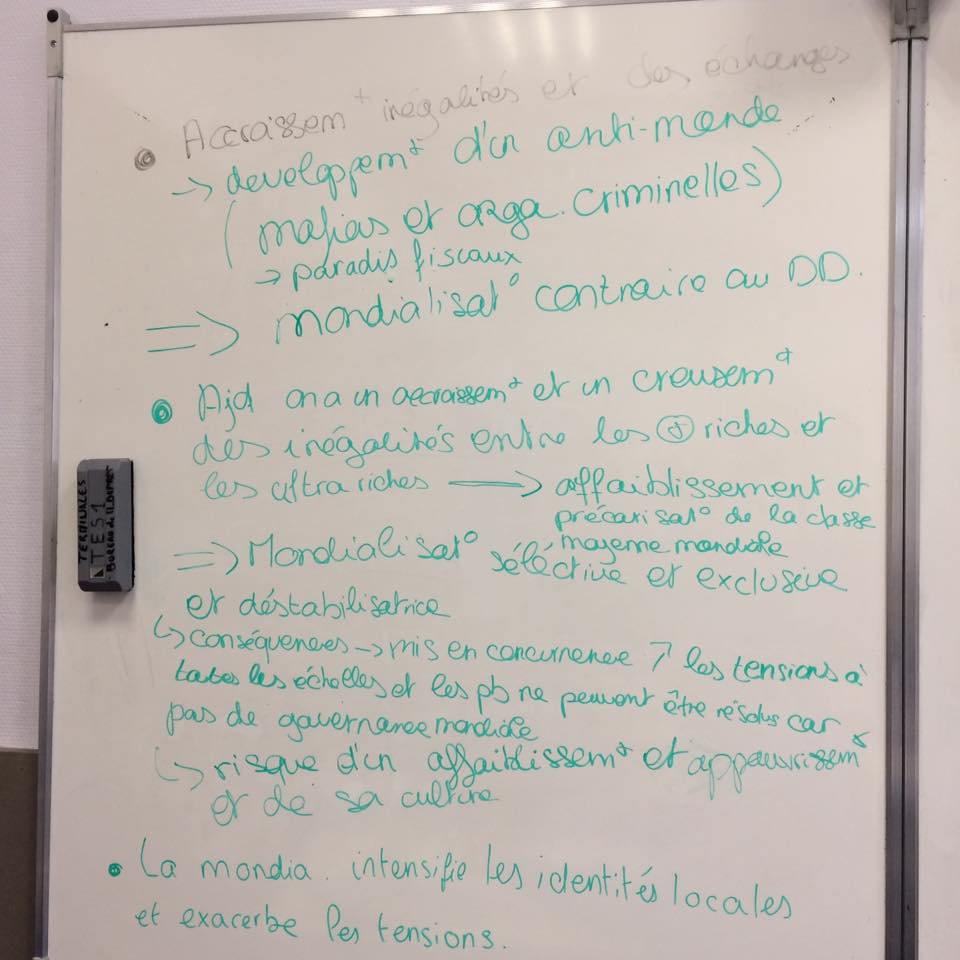 • Accroissem^t inégalités et des échanges
→ developpem^t d'un anti-monde
(mafias et orga. criminelles)
→ paradis fiscaux
=> mondialisat° contraire au DD.
• Ajd on a un accroissem^t et un creusem^t
des inégalités entre les ⊕ riches et
les ultra riches → affaiblissement et
précarisat° de la classe
moyenne mondiale
=> Mondialisat° séléctive et exclusive
et déstabilisatrice
↳ conséquences → mis en concurrence ↗ les tensions à
toutes les échelles et les pb ne peuvent être résolus car
pas de gouvernance mondiale
↳ risque d'un affaiblissem^t et appauvrissem^t
et de sa culture
• La mondia. intensifie les identités locales
et exacerbe les tensions.
TERMINALES
TES1
BUREAU du